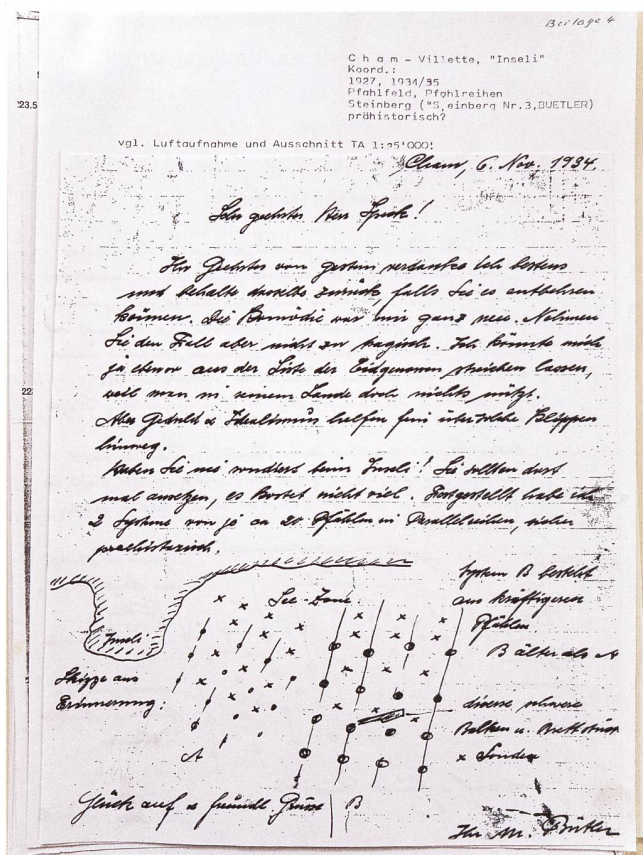 Beilage 4
Cham-Villette, "Inseli"
Koord.:
1927, 1934/35
Pfahlfeld, Pfahlreihen
Steinberg ("S einberg Nr.3,BUETLER)
prähistorisch?
223.5
vgl. Luftaufnahme und Ausschnitt TA 1:25'000!
Cham, 6. Nov. 1934.
Sehr geehrter Herr Speck!
Ihr Geehrtes von gestern verdanke ich bestens
und behalte dasselbe zurück, falls Sie es entbehren
können. Die Komödie war mir ganz neu. Nehmen
Sie den Fall aber nicht zu tragisch. Ich könnte mich
ja ebenso aus der Liste der Eidgenossen streichen lassen,
weil man in seinem Lande doch nichts nützt.
Aber Geduld & Idealismus helfen über solche Klippen
hinweg.
Haben Sie nie sondiert beim Inseli! Sie sollten dort
mal ansetzen, es kostet nicht viel. Festgestellt habe ich
2 Systeme von je ca 20 Pfählen in Parallelreihen, sicher
praehistorisch.
22
See-Zone
Inseli
System B besteht
aus kräftigeren
Pfählen
B älter als A
Skizze aus
Erinnerung:
diverse schwere
Balken u. Brettstücke
x Sonden
A
B
Glück auf & freundl. Grüsse
Ihr M. Bütler